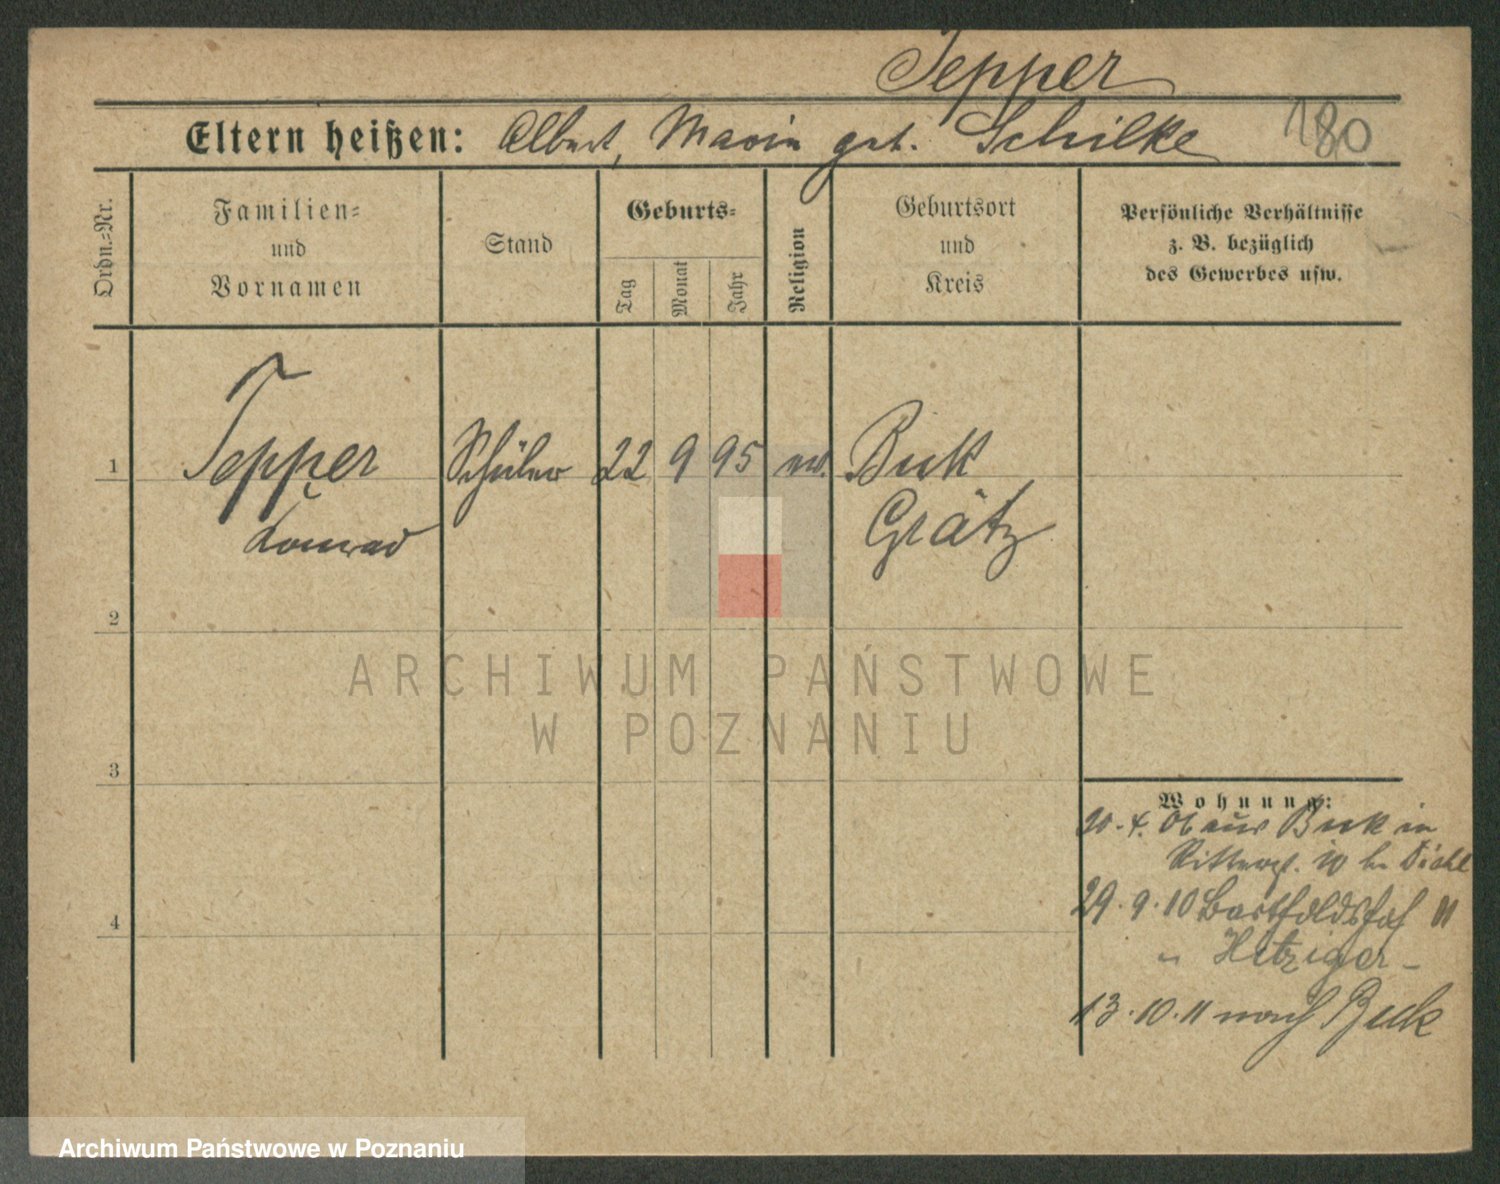 Tepper
Eltern heißen: Albert, Maria geb. Schilke 180
Ordn.-Nr.
Familien-
und
Vornamen
Stand
Geburts-
Tag
Monat
Jahr
Religion
Geburtsort
und
Kreis
Persönliche Verhältnisse
z. B. bezüglich
des Gewerbes usw.
1 Tepper Schüler 22 9 95 ev. Buk
Konrad Grätz
2
3
4
Wohnung:
06 aus Buk in
10
29.9.10 11
" Hitziger
13.10.11 nach Buk
ARCHIWUM PAŃSTWOWE
W POZNANIU
Archiwum Państwowe w Poznaniu